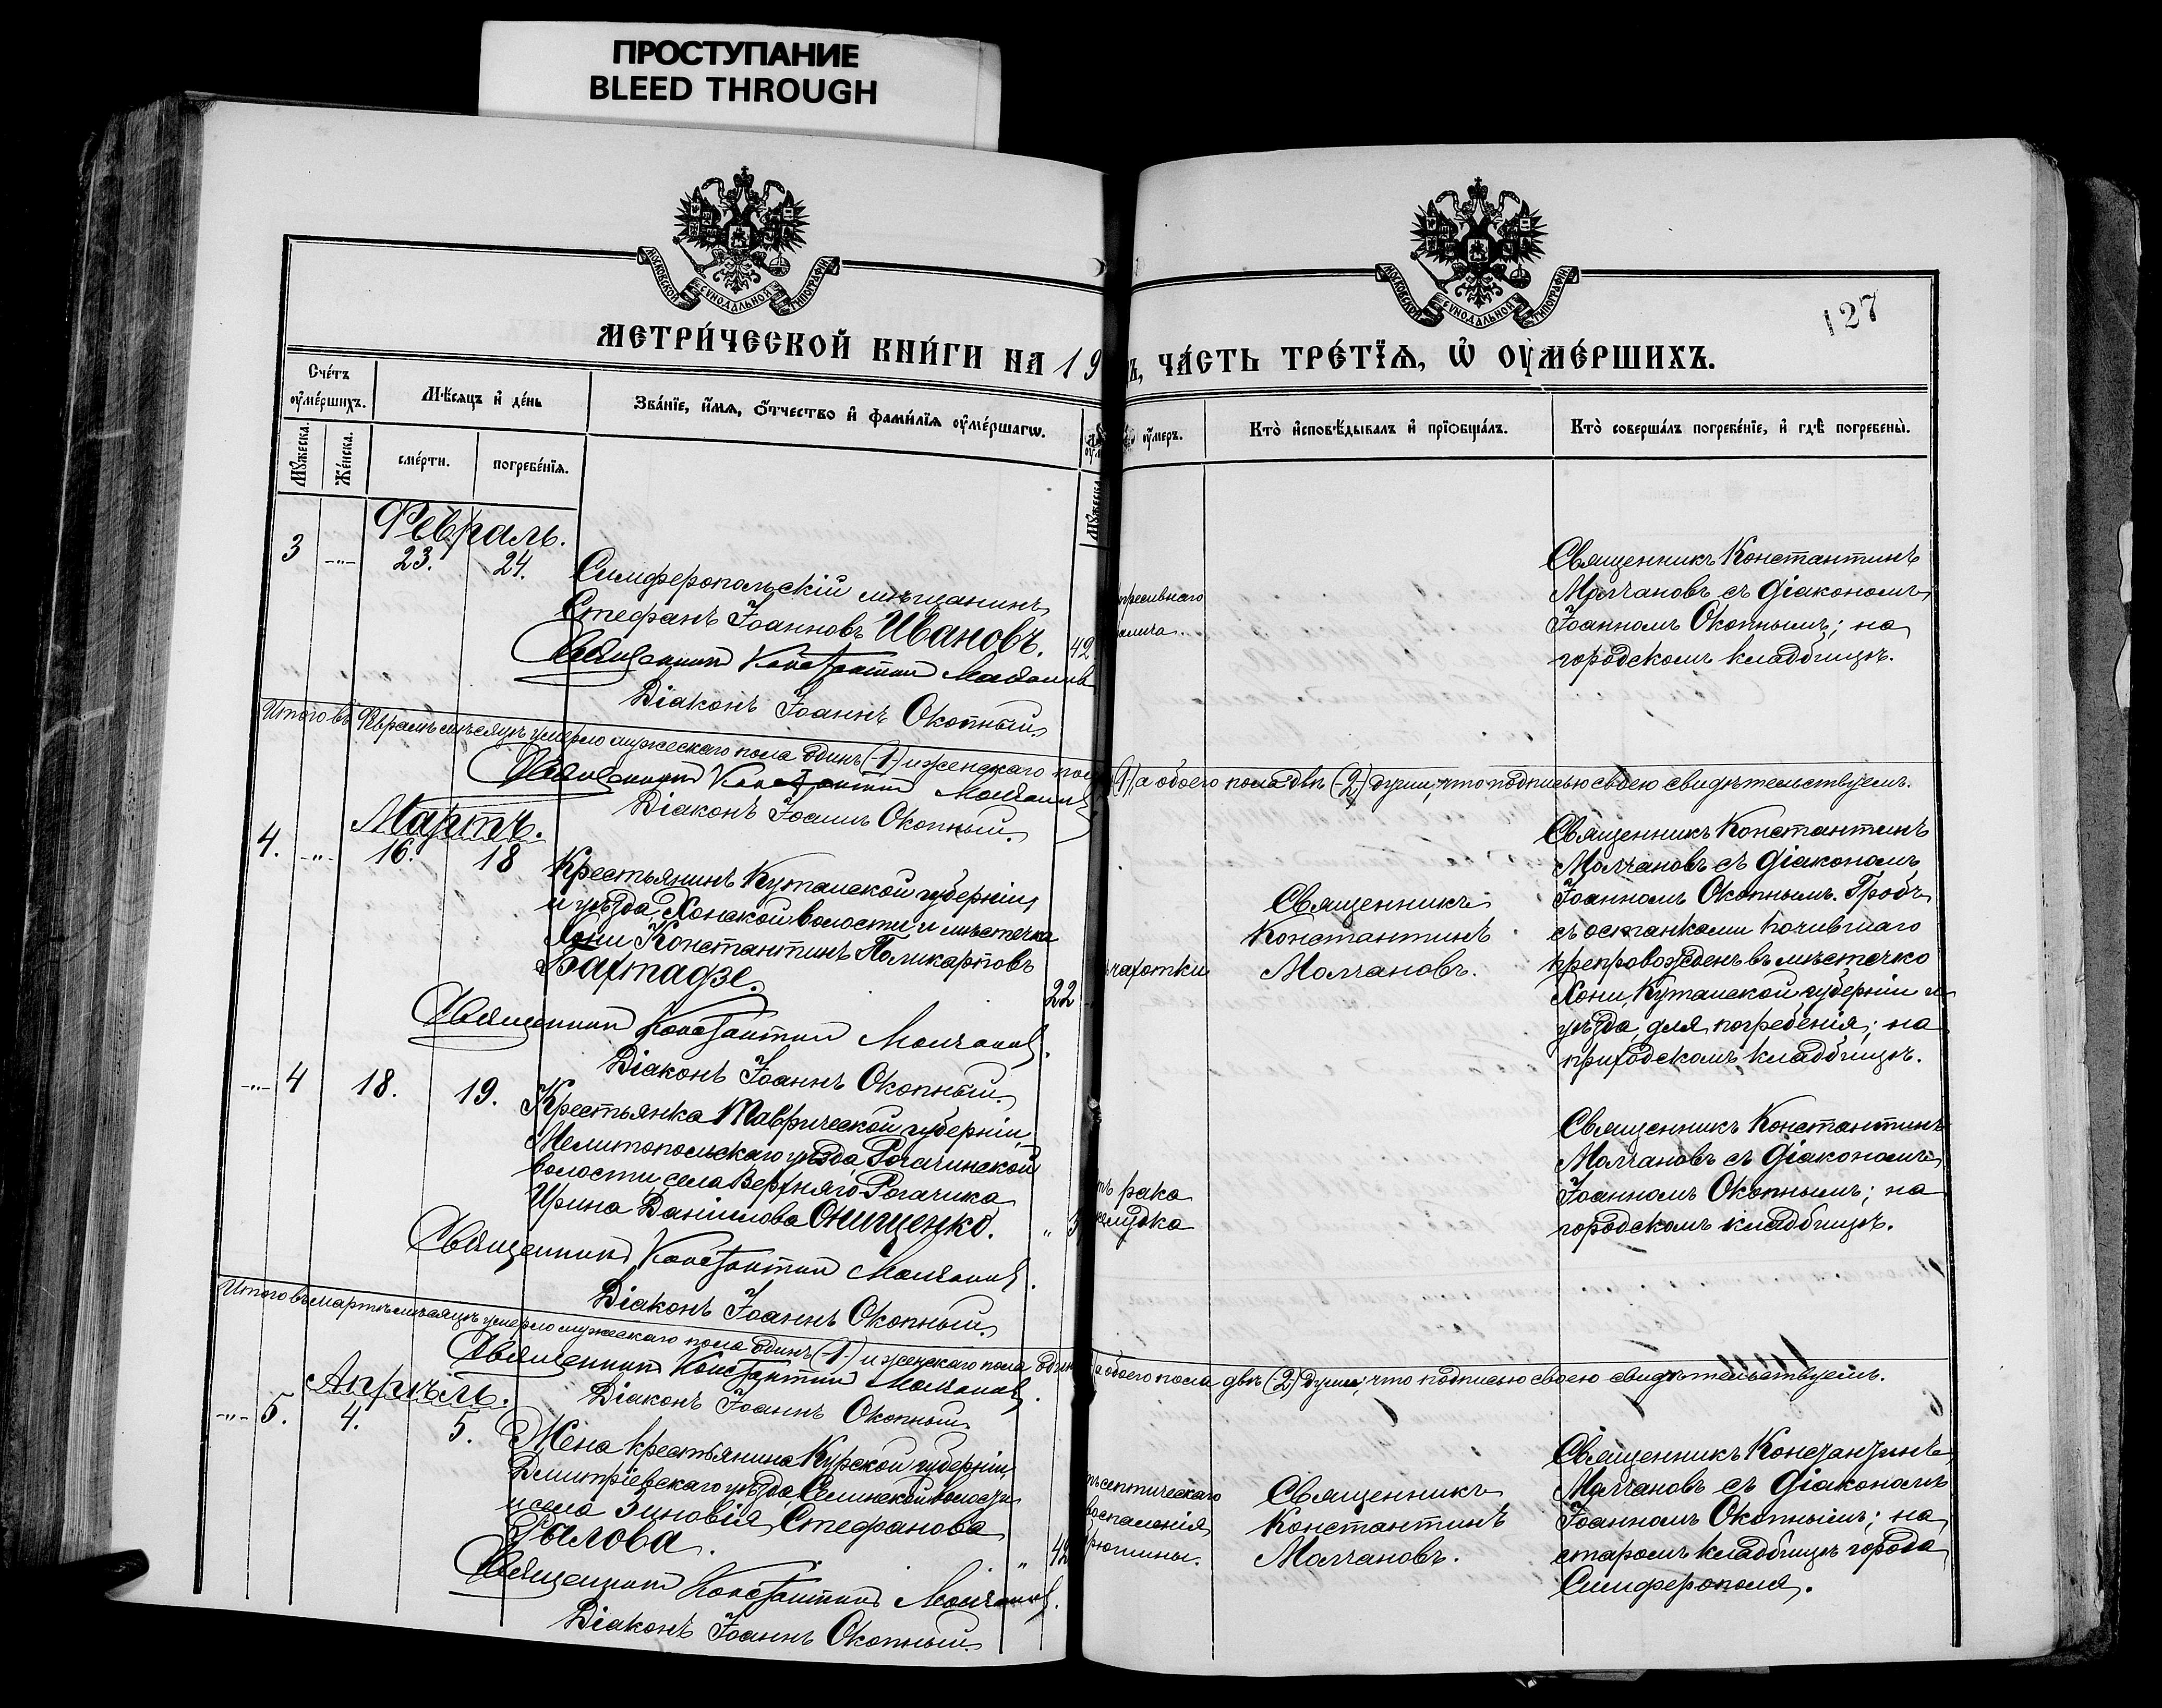 ПРОСТУПАНИЕ
BLEED THROUGH
МОСКОВСКОЙ СѴНОДАЛЬНОЙ ТИПОГРАФІИ
МОСКОВСКОЙ СѴНОДАЛЬНОЙ ТИПОГРАФІИ
127
МЕТРИ́ЧЕСКОЙ КНИ́ГИ НА 19
Ъ, ЧА́СТЬ ТРЕ́ТЇѦ, Ѡ҆ ОУ҆МЕ́РШИХЪ.
Сче́тъ
оу҆ме́ршихъ.
Мѣ́сяцъ и҆ де́нь
Зва́нїе, и҆́мѧ, ѻ҆́тчество и҆ фами́лїѧ оу҆ме́ршагѡ.
оу҆́меръ.
Кто̀ и҆сповѣ́дывалъ и҆ прїѻбща́лъ.
Кто̀ соверша́лъ погребе́нїе, и҆ гдѣ̀ погребены̀.
Мꙋ́жеска.
Же́нска.
сме́рти.
погребе́нїѧ.
Мꙋ́жеска.
Февраль.
3 -"- 23. 24.
Симферопольскій мѣщанинъ
Стефанъ Іоанновъ Ивановъ. 42
Священникъ Константинъ Молчановъ
Діаконъ Іоаннъ Окопный.
Священникъ Константинъ
Молчановъ съ діакономъ
Іоанномъ Окопнымъ; на
городскомъ кладбищѣ.
Итого въ Февралѣ мѣсяцѣ умерло мужескаго пола одинъ (-1-) и женскаго по
(1), а обоего пола двѣ (-2-) души, что подписью своею свидѣтельствуемъ.
Священникъ Константинъ Молчановъ
Діаконъ Іоаннъ Окопный.
Мартъ.
4. -"- 16. 18
Крестьянинъ Кутаисской губерніи
и уѣзда, Хонской волости и мѣстечка
Хони Константинъ Поликарповъ
Бахтадзе. 22
Священникъ Константинъ Молчановъ.
Діаконъ Іоаннъ Окопный.
чахотки
Священникъ
Константинъ
Молчановъ.
Священникъ Константинъ
Молчановъ съ діакономъ
Іоанномъ Окопнымъ. Гробъ
съ останками почившаго
препровожденъ въ мѣстечко
Хони, Кутаисской губерніи и
уѣзда, для погребенія; на
приходскомъ кладбищѣ.
-"- 4 18. 19.
Крестьянка Таврической губерніи,
Мелитопольскаго уѣзда, Рогачинской
волости, села Верхняго Рогачика
Ирина Даніилова Онищенко. "
Священникъ Константинъ Молчановъ.
Діаконъ Іоаннъ Окопный.
рака
желудка
Священникъ Константинъ
Молчановъ съ діакономъ
Іоанномъ Окопнымъ; на
городскомъ кладбищѣ.
Итого въ мартѣ мѣсяцѣ умерло мужескаго пола одинъ (-1-) и женскаго пола одн
а обоего пола двѣ (-2-) души, что подписью своею свидѣтельствуемъ.
Священникъ Константинъ Молчановъ.
Діаконъ Іоаннъ Окопный
Апрѣль.
-"- 5. 4. 5.
Жена крестьянина Курской губерніи,
Дмитріевскаго уѣзда, Селинской волости
и села Зиновія Стефанова
Рылова. " 42
Священникъ Константинъ Молчановъ.
Діаконъ Іоаннъ Окопный
септическаго
воспаленія
брюшины.
Священникъ
Константинъ
Молчановъ.
Священникъ Константинъ
Молчановъ съ діакономъ
Іоанномъ Окопнымъ; на
старомъ кладбищѣ города
Симферополя.